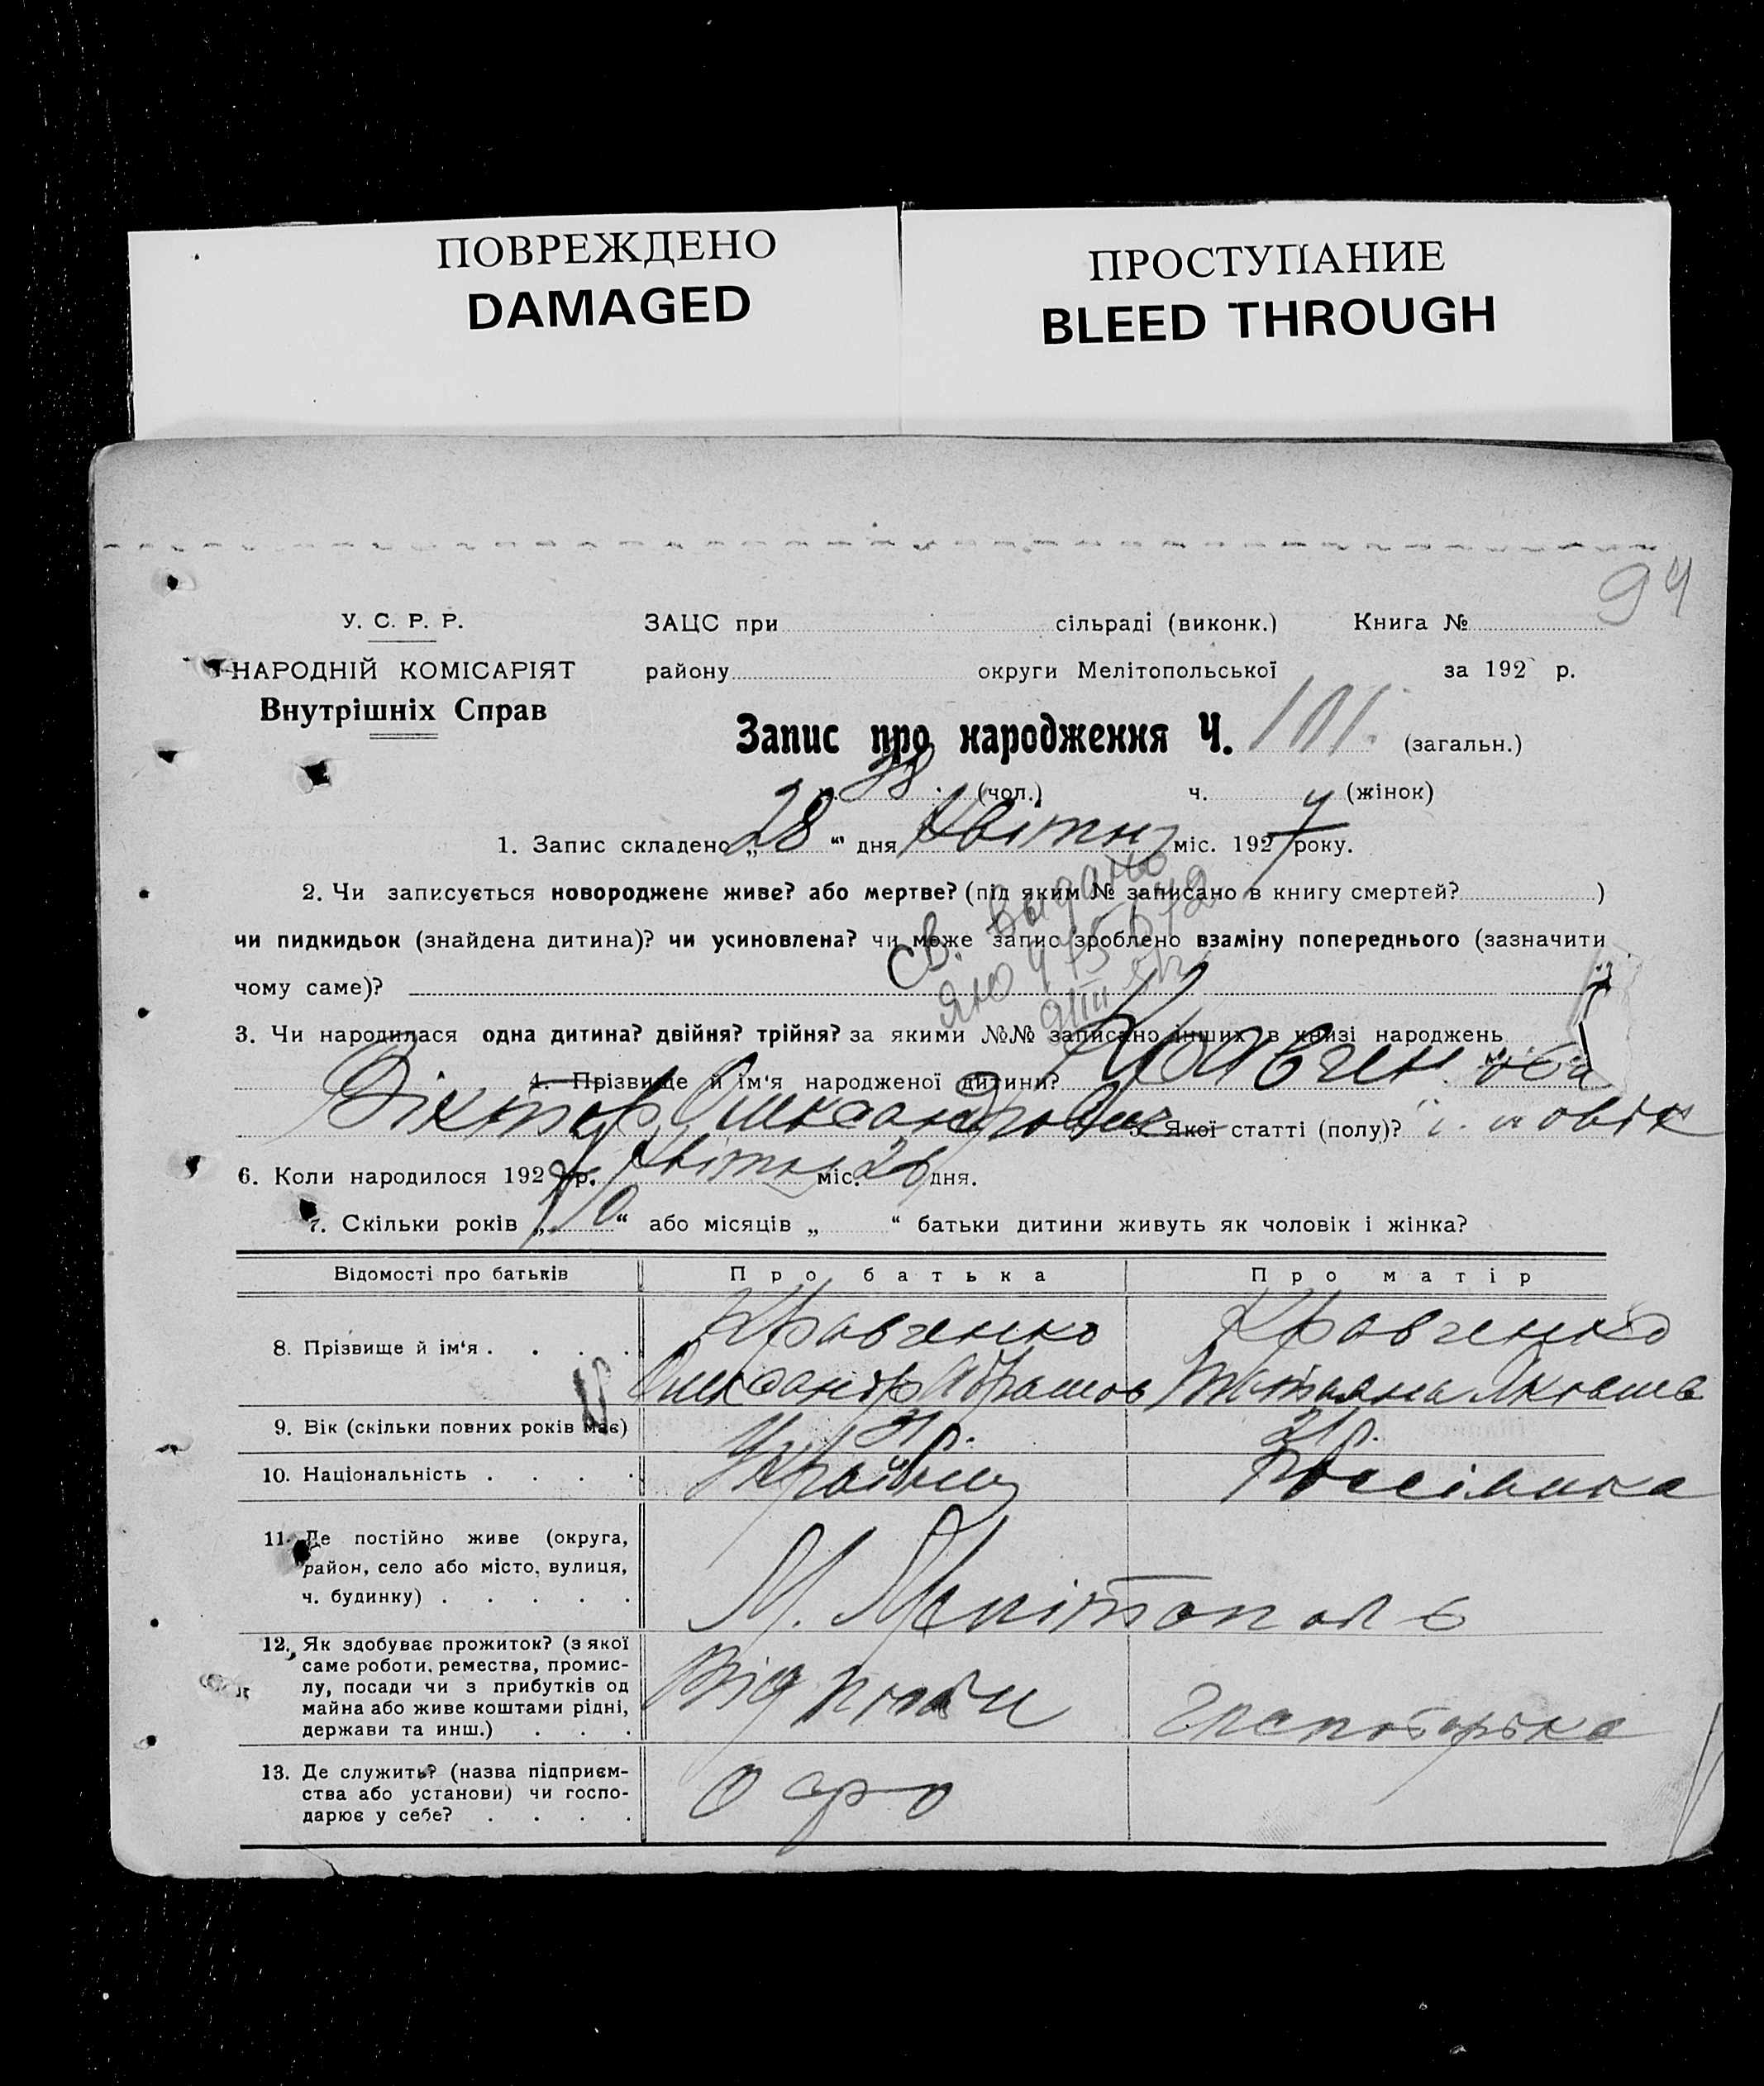 ПОВРЕЖДЕНО
DAMAGED
ПРОСТУПАНИЕ
BLEED THROUGH
94
У. С. Р. Р.
НАРОДНІЙ КОМІСАРІЯТ
Внутрішніх Справ
ЗАЦС при сільраді (виконк.) Книга №
району округи Мелітопольської за 192 р.
Запис про народження Ч. 101. (загальн.)
38 (чол.) ч. (жінок)
1. Запис складено „28“ дня Квітня міс. 1927 року.
2. Чи записується новороджене живе? або мертве? (під яким № записано в книгу смертей? )
чи пидкидьок (знайдена дитина)? чи усиновлена? чи може запис зроблено взаміну попереднього (зазначити
чому саме)?
св. выдано
3. Чи народилася одна дитина? двійня? трійня? за якими №№ записано інших в книзі народжень
4. Прізвище й ім'я народженої дитини? Кравчен
Віктор Олександрович 5. Якої статті (полу)? човік
6. Коли народилося 1927 р. Квітня міс. дня.
7. Скільки років „ “ або місяців „ “ батьки дитини живуть як чоловік і жінка?
Відомості про батьків Про батька Про матір
8. Прізвище й ім'я . . . . Кравченко Кравченко
Олександр Абрамов Татьяна Яковлев
9. Вік (скільки повних років має) 21 р.
10. Національність . . . . Українец Россіянка
11. Де постійно живе (округа, район, село або місто, вулиця, ч. будинку) . . . . .
М. Мелітополь
12. Як здобуває прожиток? (з якої саме роботи, ремества, промислу, посади чи з прибутків од майна або живе коштами рідні, держави та инш.) . . .
Від
13. Де служить? (назва підприємства або установи) чи господарює у себе? . . . .